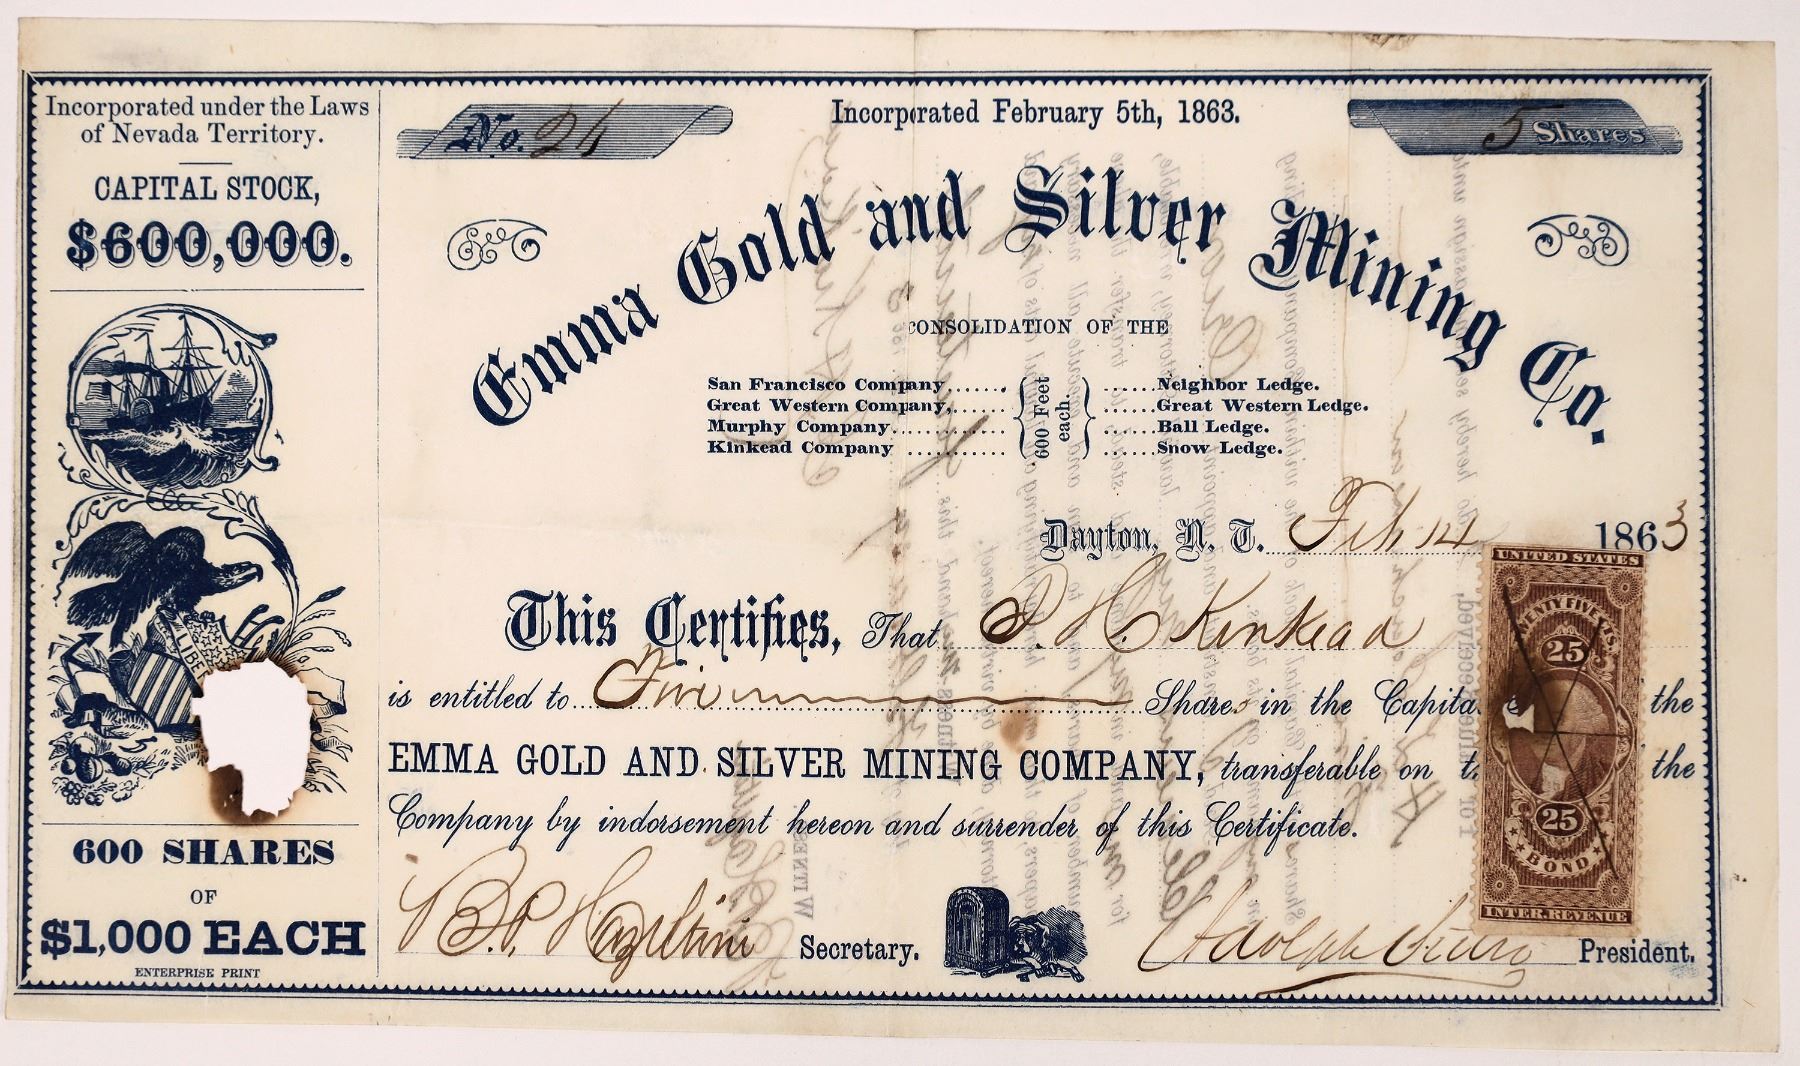 Incorporated under the Laws
of Nevada Territory.
CAPITAL STOCK,
$600,000.
LIBER
600 SHARES
OF
$1,000 EACH
ENTERPRISE PRINT
No. 24
Incorporated February 5th, 1863.
5 Shares
Emma Gold and Silver Mining Co.
CONSOLIDATION OF THE
San Francisco Company....... 600 Feet each. ......Neighbor Ledge.
Great Western Company,...... ......Great Western Ledge.
Murphy Company............ ......Ball Ledge.
Kinkead Company .......... ......Snow Ledge.
Dayton, N. T. Feb 14 1863
This Certifies, That J. H. Kinkead
is entitled to Five Shares in the Capita the
EMMA GOLD AND SILVER MINING COMPANY, transferable on t the
Company by indorsement hereon and surrender of this Certificate.
B. P. Secretary.
Adolph President.
UNITED STATES
TWENTY FIVE CTS.
25
25
BOND
INTER. REVENUE